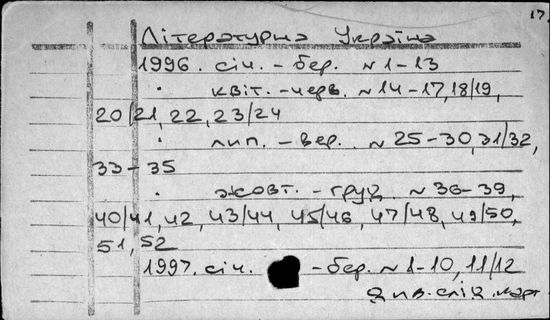 17.
Літературна Україна
1996. січ. – бер. N 1–13
квіт. – черв. N 14–17, 18/19,
20/21, 22, 23/24
лип. – вер. N 25–30, 31/32,
33–35
жовт. – груд. N 36–39,
40/41, 42, 43/44, 45/46, 47/48, 49/50,
51, 52
1997. січ. – бер. N 1–10, 11/12